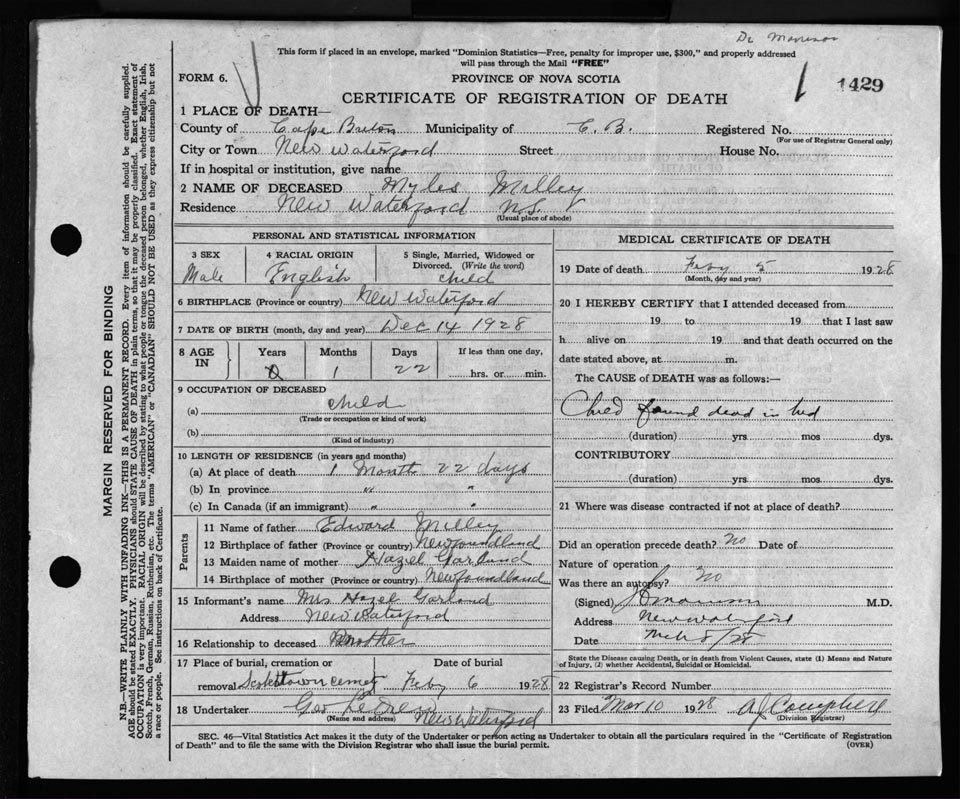 Dr Morrison
This form if placed in an envelope, marked "Dominion Statistics—Free, penalty for improper use, $300," and properly addressed
will pass through the Mail "FREE"
FORM 6.
PROVINCE OF NOVA SCOTIA
1429
CERTIFICATE OF REGISTRATION OF DEATH
1 PLACE OF DEATH—
County of Cape Breton Municipality of C. B. Registered No.
(For use of Registrar General only)
City or Town New Waterford Street House No.
If in hospital or institution, give name
2 NAME OF DECEASED Myles Milley
Residence New Waterford N.S.
(Usual place of abode)
PERSONAL AND STATISTICAL INFORMATION
3 SEX 4 RACIAL ORIGIN 5 Single, Married, Widowed or
Divorced. (Write the word)
Male English child
6 BIRTHPLACE (Province or country) New Waterford
7 DATE OF BIRTH (month, day and year) Dec 14 1928
8 AGE IN Years Months Days If less than one day,
0 1 22 hrs. or min.
9 OCCUPATION OF DECEASED
(a) child
(Trade or occupation or kind of work)
(b)
(Kind of industry)
10 LENGTH OF RESIDENCE (in years and months)
(a) At place of death 1 Month 22 days
(b) In province " "
(c) In Canada (if an immigrant) " "
Parents
11 Name of father Edward Milley
12 Birthplace of father (Province or country) Newfoundland
13 Maiden name of mother Hazel Garland
14 Birthplace of mother (Province or country) Newfoundland
15 Informant's name Mrs Hazel Garland
Address New Waterford
16 Relationship to deceased Mother
17 Place of burial, cremation or Date of burial
removal Scotchtown cemet Feby 6 1928
18 Undertaker Geo New Waterford
(Name and address)
MEDICAL CERTIFICATE OF DEATH
19 Date of death Feby 5 1928
(Month, day and year)
20 I HEREBY CERTIFY that I attended deceased from
19 to 19 that I last saw
h alive on 19 and that death occurred on the
date stated above, at m.
The CAUSE of DEATH was as follows:—
Child found dead in bed
(duration) yrs. mos dys.
CONTRIBUTORY
(duration) yrs. mos. dys.
21 Where was disease contracted if not at place of death?
Did an operation precede death? No Date of
Nature of operation
Was there an autopsy? No
(Signed) Morrison M.D.
Address New Waterford
Date Mch 8/28
State the Disease causing Death, or in death from Violent Causes, state (1) Means and Nature
of Injury, (2) whether Accidental, Suicidal or Homicidal.
22 Registrar's Record Number
23 Filed Mar 10 1928 A J Campbell
(Division Registrar)
SEC. 46—Vital Statistics Act makes it the duty of the Undertaker or person acting as Undertaker to obtain all the particulars required in the "Certificate of Registration
of Death" and to file the same with the Division Registrar who shall issue the burial permit.
(OVER)
MARGIN RESERVED FOR BINDING
N.B.—WRITE PLAINLY WITH UNFADING INK—THIS IS A PERMANENT RECORD. Every item of information should be carefully supplied.
AGE should be stated EXACTLY. PHYSICIANS should STATE CAUSE OF DEATH in plain terms, so that it may be properly classified. Exact statement of
OCCUPATION is very important. RACIAL ORIGIN will be described by stating to what people or tongue the deceased person belonged, whether English, Irish,
Scotch, French, German, Russian, Ruthenian, etc. The terms "AMERICAN" or "CANADIAN" SHOULD NOT BE USED as they express citizenship but not
a race or people. See instructions on back of Certificate.